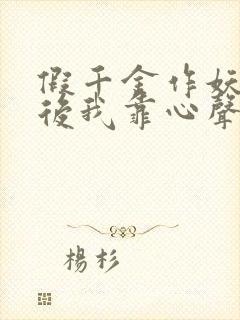 假千金作妖
後我靠心聲
楊杉